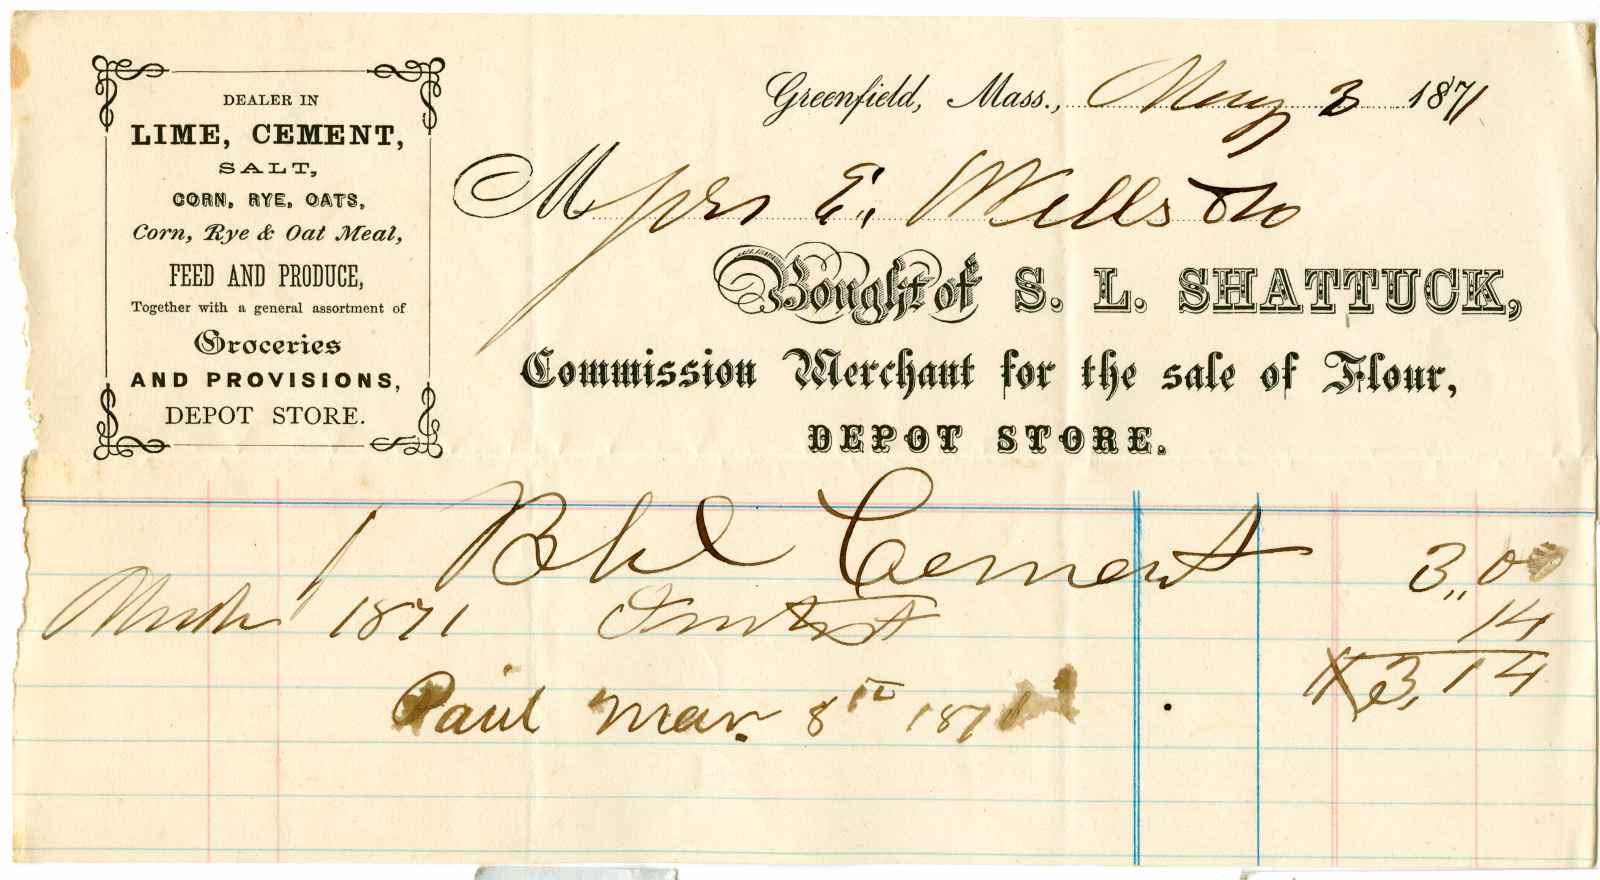 DEALER IN
LIME, CEMENT,
SALT,
CORN, RYE, OATS,
Corn, Rye & Oat Meal,
FEED AND PRODUCE,
Together with a general assortment of
Groceries
AND PROVISIONS,
DEPOT STORE.
Greenfield, Mass., 1871
M E. Wells & Co
Bought of S. L. SHATTUCK,
Commission Merchant for the sale of Flour,
DEPOT STORE.
1 Bbl Cement 3,,00
1871 14
3,14
Paid Mar. 8th 1871